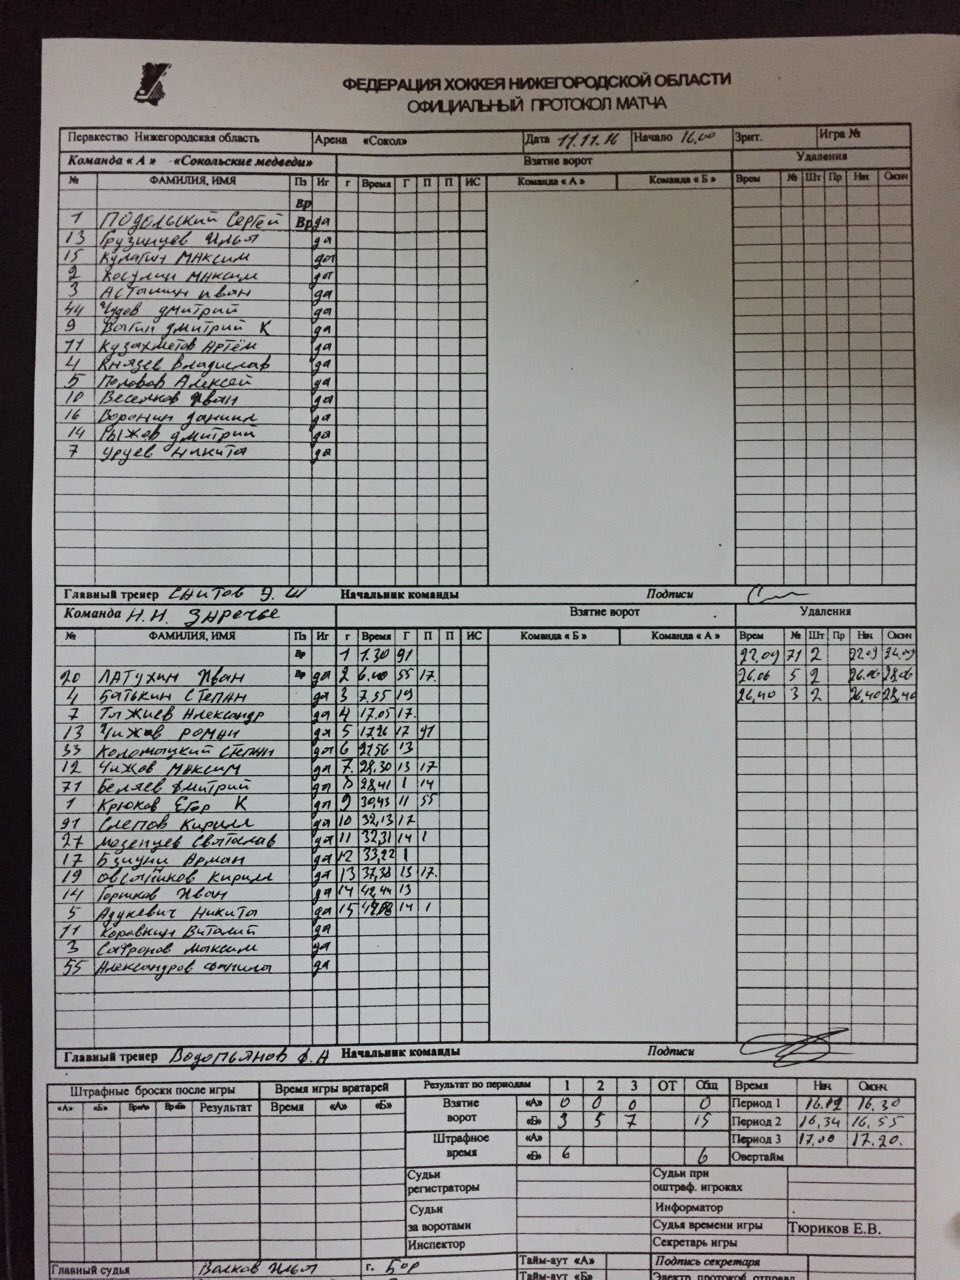 ФЕДЕРАЦИЯ ХОККЕЯ НИЖЕГОРОДСКОЙ ОБЛАСТИ
ОФИЦИАЛЬНЫЙ ПРОТОКОЛ МАТЧА
Первенство Нижегородская область Арена «Сокол» Дата 11.11.16 Начало 16,00 Зрит. Игра №
Команда « А » «Сокольские медведи» Взятие ворот Удаления
№ ФАМИЛИЯ, ИМЯ Пз Иг г Время Г П П ИС Команда « А » Команда « Б » Врем № Шт Пр Нач Оконч
Вр
1 Подольский Сергей Вр да
13 Грузинцев Илья да
15 Кулагин Максим да
2 Косулин Максим да
3 Асташин Иван да
44 Чудов Дмитрий да
9 Вагин Дмитрий К да
71 Кузахметов Артём да
4 Князев Владислав да
5 Половов Алексей да
10 Веселков Иван да
16 Воронин Даниил да
14 Рыжов Дмитрий да
7 Уруев Никита да
Главный тренер Саитов Э. Ш Начальник команды Подписи
Команда Н.Н. Заречье Взятие ворот Удаления
№ ФАМИЛИЯ, ИМЯ Пз Иг г Время Г П П ИС Команда « Б » Команда « А » Врем № Шт Пр Нач Оконч
Вр 1 1.30 91 22.09 71 2 22.09 24.09
20 Латухин Иван Вр да 2 6.40 55 17. 26.06 5 2 26.06 28.06
4 Батькин Степан да 3 7.55 19 26,40 3 2 26,40 28,40
7 Александр да 4 17.05 17.
13 Чижов Роман да 5 17 91
33 Коломыцкий Степан да 6 27.56 13
12 Чижов Максим да 7. 28.30 13 17
71 Беляев Дмитрий да 8 28,41 1 14
1 Крюков Егор К да 9 30,43 11 55
91 Слепов Кирилл да 10 32,13 17
27 Мозенцев Святослав да 11 32,31 14 1
17 Бзиуни Арман да 12 33,22 1
19 Овсянников Кирилл да 13 37,38 13 17.
14 Горшков Иван да 14 42,44 13
5 Адукевич Никита да 15 14 1
11 Коровкин Виталий да
3 Сафронов Максим да
55 Александров Данила да
Главный тренер Водопьянов Ф.А Начальник команды Подписи
Штрафные броски после игры Время игры вратарей Результат по периодам 1 2 3 ОТ Общ Время Нач. Оконч.
«А» «Б» Вр«А» Вр«Б» Результат Время «А» «Б» Взятие ворот «А» 0 0 0 0 Период 1 16.12 16.30
«Б» 3 5 7 15 Период 2 16,34 16,55
Штрафное время «А» Период 3 17,00 17.20.
«Б» 6 6 Овертайм
Судьи регистраторы Судьи при оштраф. игроках
Судьи за воротами Информатор
Судья времени игры Тюриков Е.В.
Инспектор Секретарь игры
Главный судья Волков Илья г. Бор Тайм-аут «А» Подпись секретаря
Тайм-аут «Б» Электр. протокол отправл